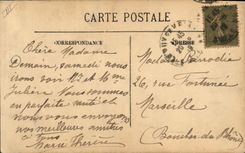 CARTE POSTALE
CORRESPONDANCE
ADRESSE
Chère Madame
Demain, samedi nous
irons voir Mr et Mme
Julien Nous sommes
en parfaite santé et
nous vous envoyons
nos meilleures amitiés
à tous
Marie Thérèse
Madame
26, rue Fortunée
Marseille
Bouches du Rhône